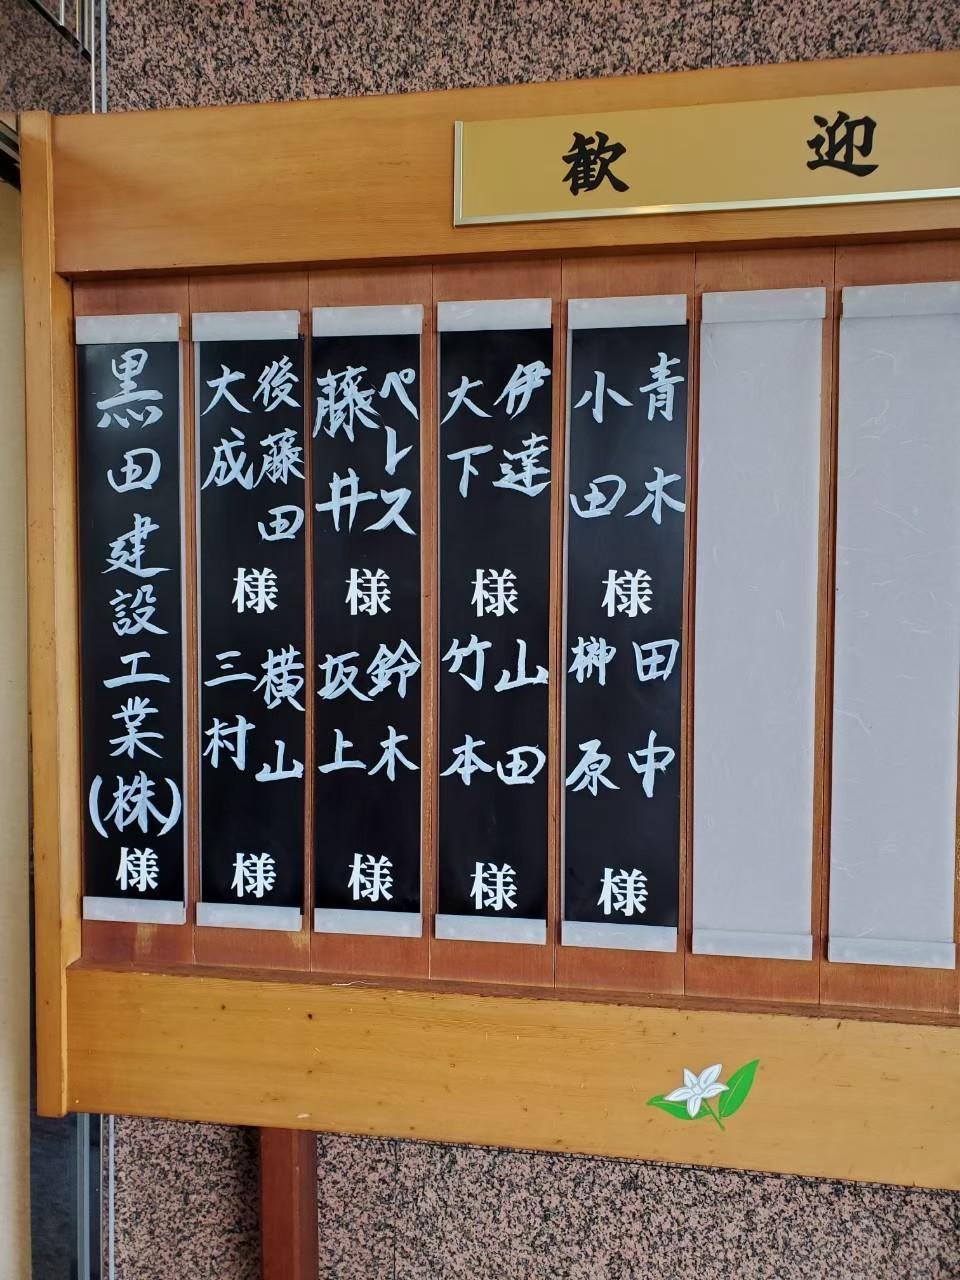 歓迎
青木 田中
小田 榊原
様 様
伊達 山田
大下 竹本
様 様
ペレス 鈴木
藤井 坂上
様 様
後藤田 横山
大成 三村
様 様
黒田建設工業(株)様